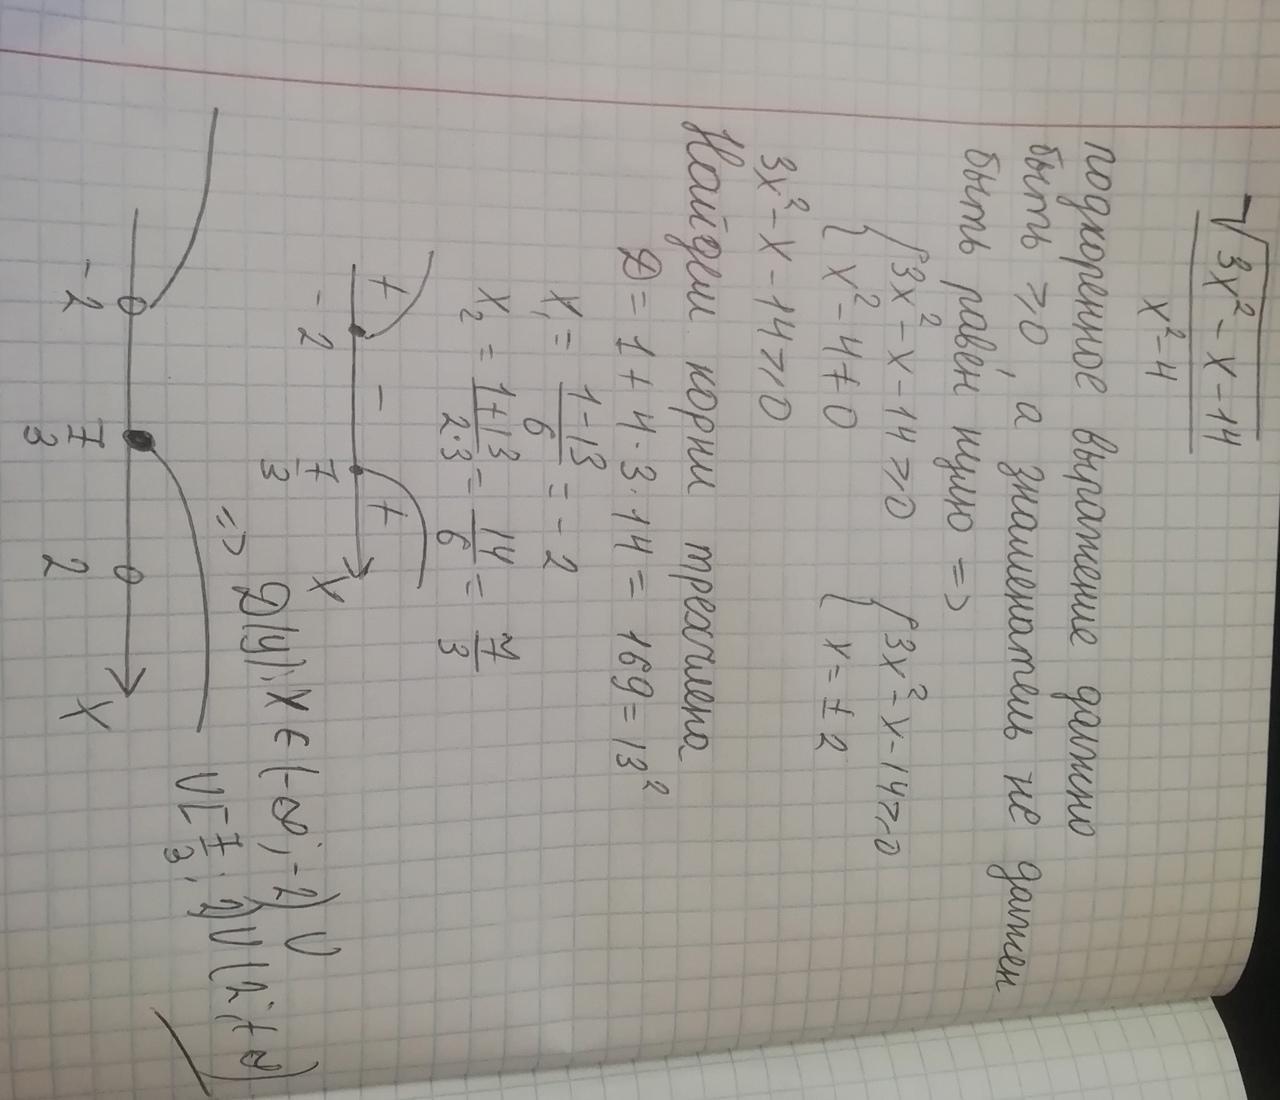 √3x² - x - 14
x² - 4
подкоренное выражение должно
быть ⩾0, а знаменатель не должен
быть равен нулю =>
{3x² - x - 14 ⩾0 {3x² - x - 14⩾0
{x² - 4 ≠ 0 {x = ± 2
3x² - x - 14⩾0
Найдем корни трехчлена
D = 1 + 4·3·14 = 169 = 13²
x₁ = 1-13/6 = - 2
x₂ = 1+13/2·3 = 14/6 = 7/3
+ - +
-2 7/3 x
=> D(y): x ∈ (-∞; -2) U
U[7/3; 2) U (2; +∞)
-2 7/3 2 x